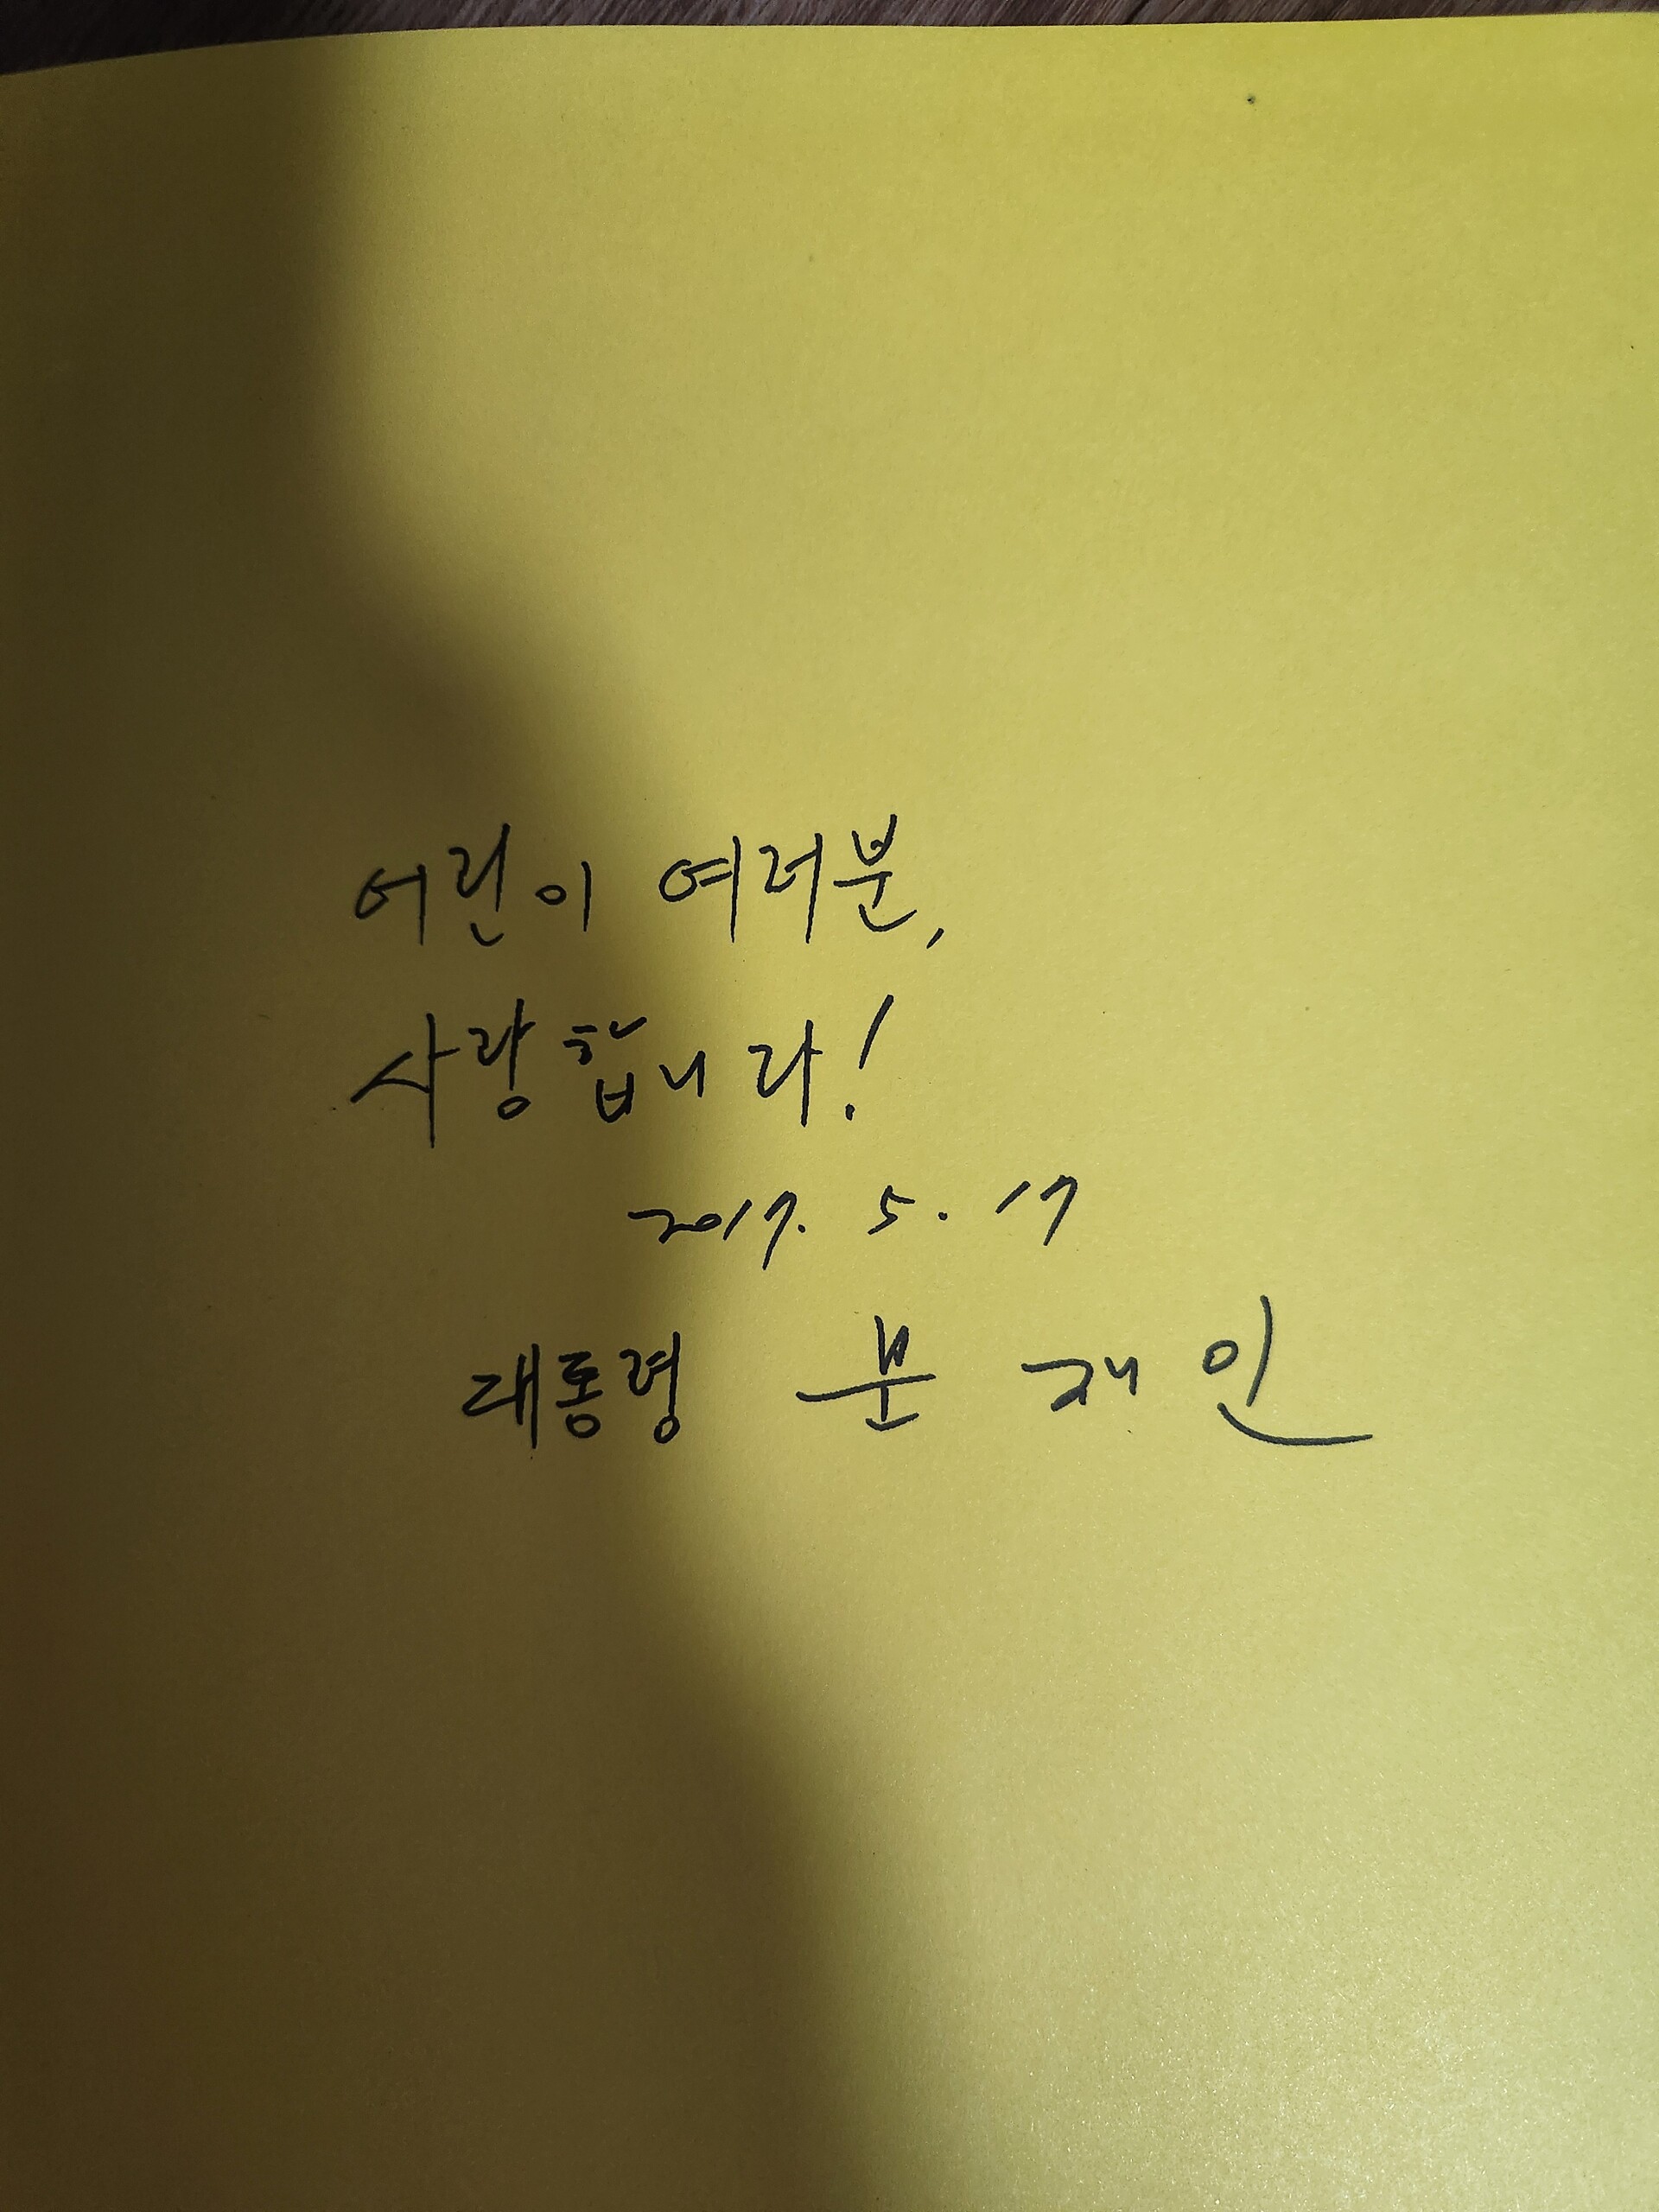 어린이 여러분,
사랑합니다!
2017. 5. 17
대통령 문재인